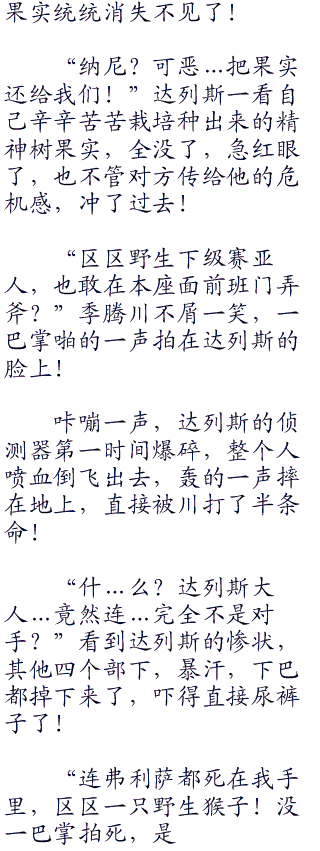 果实统统消失不见了！
“纳尼？可恶…把果实
还给我们！”达列斯一看自
己辛辛苦苦栽培种出来的精
神树果实，全没了，急红眼
了，也不管对方传给他的危
机感，冲了过去！
“区区野生下级赛亚
人，也敢在本座面前班门弄
斧？”季腾川不屑一笑，一
巴掌啪的一声拍在达列斯的
脸上！
咔嘣一声，达列斯的侦
测器第一时间爆碎，整个人
喷血倒飞出去，轰的一声摔
在地上，直接被川打了半条
命！
“什…么？达列斯大
人…竟然连…完全不是对
手？”看到达列斯的惨状，
其他四个部下，暴汗，下巴
都掉下来了，吓得直接尿裤
子了！
“连弗利萨都死在我手
里，区区一只野生猴子！没
一巴掌拍死，是